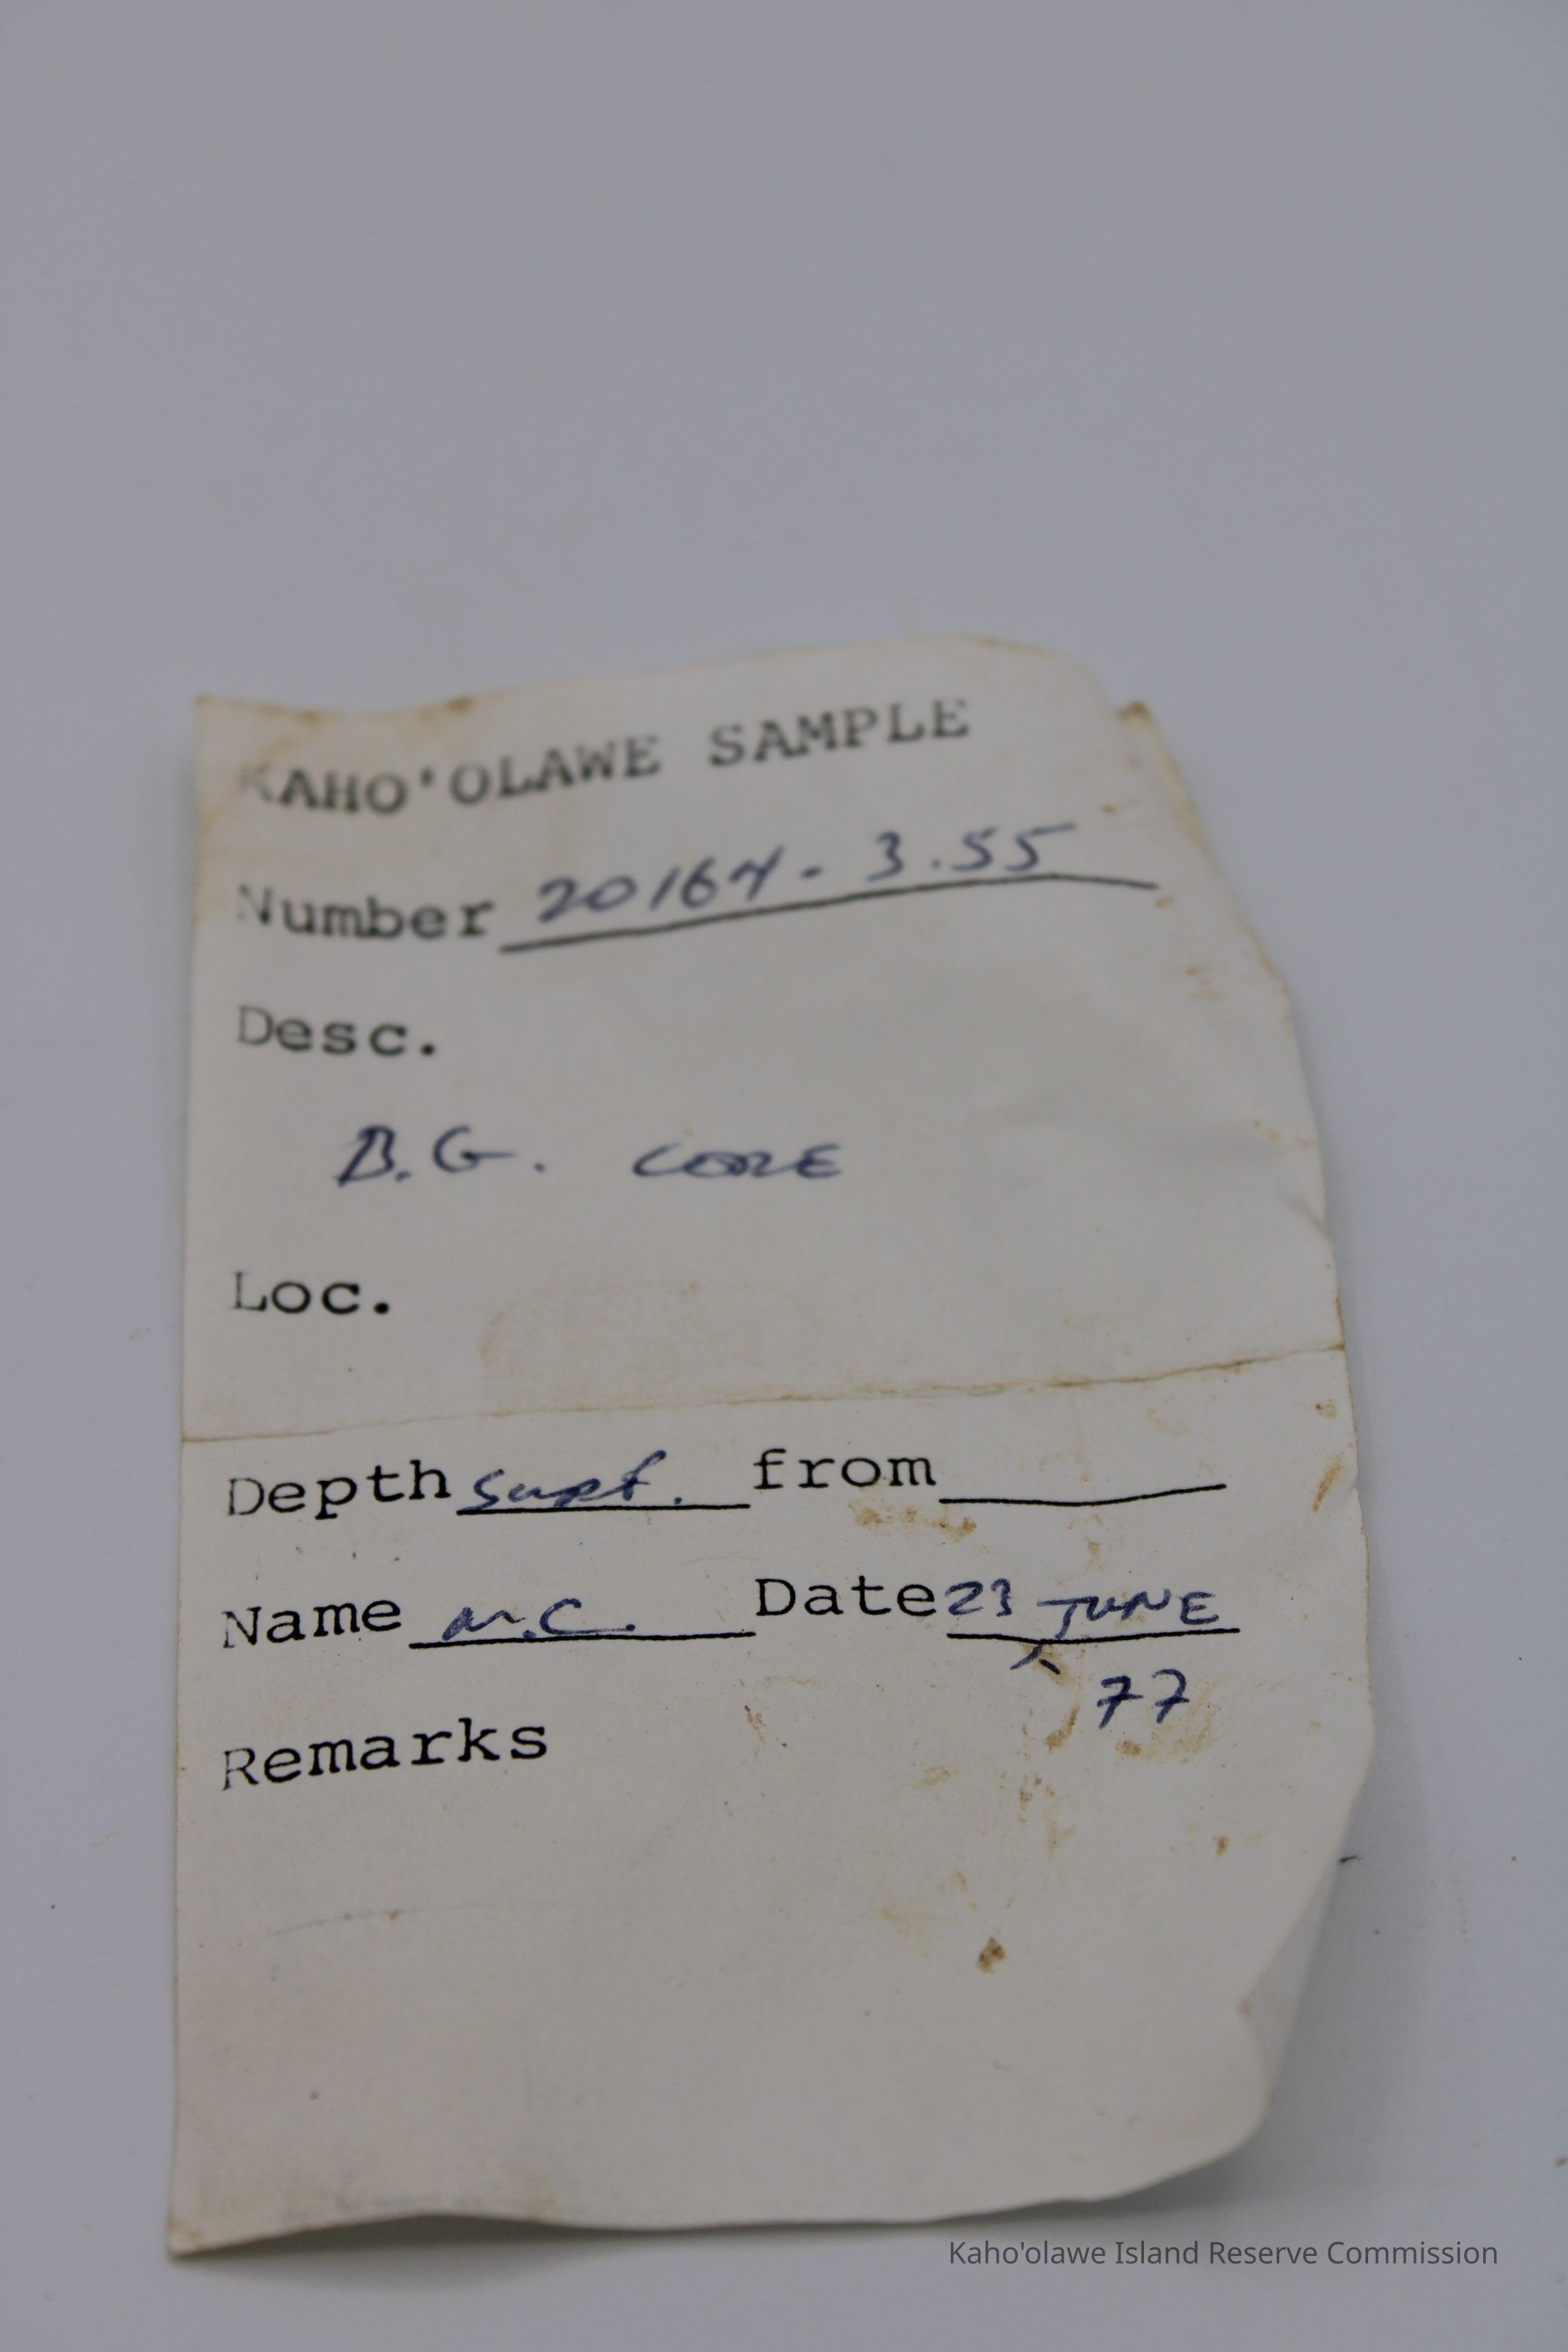 KAHO'OLAWE SAMPLE
Number 20164 - 3.55
Desc.
B.G. CORE
Loc.
Depth surf. from
Name M.C. Date 23 JUNE
77
Remarks
Kaho'olawe Island Reserve Commission